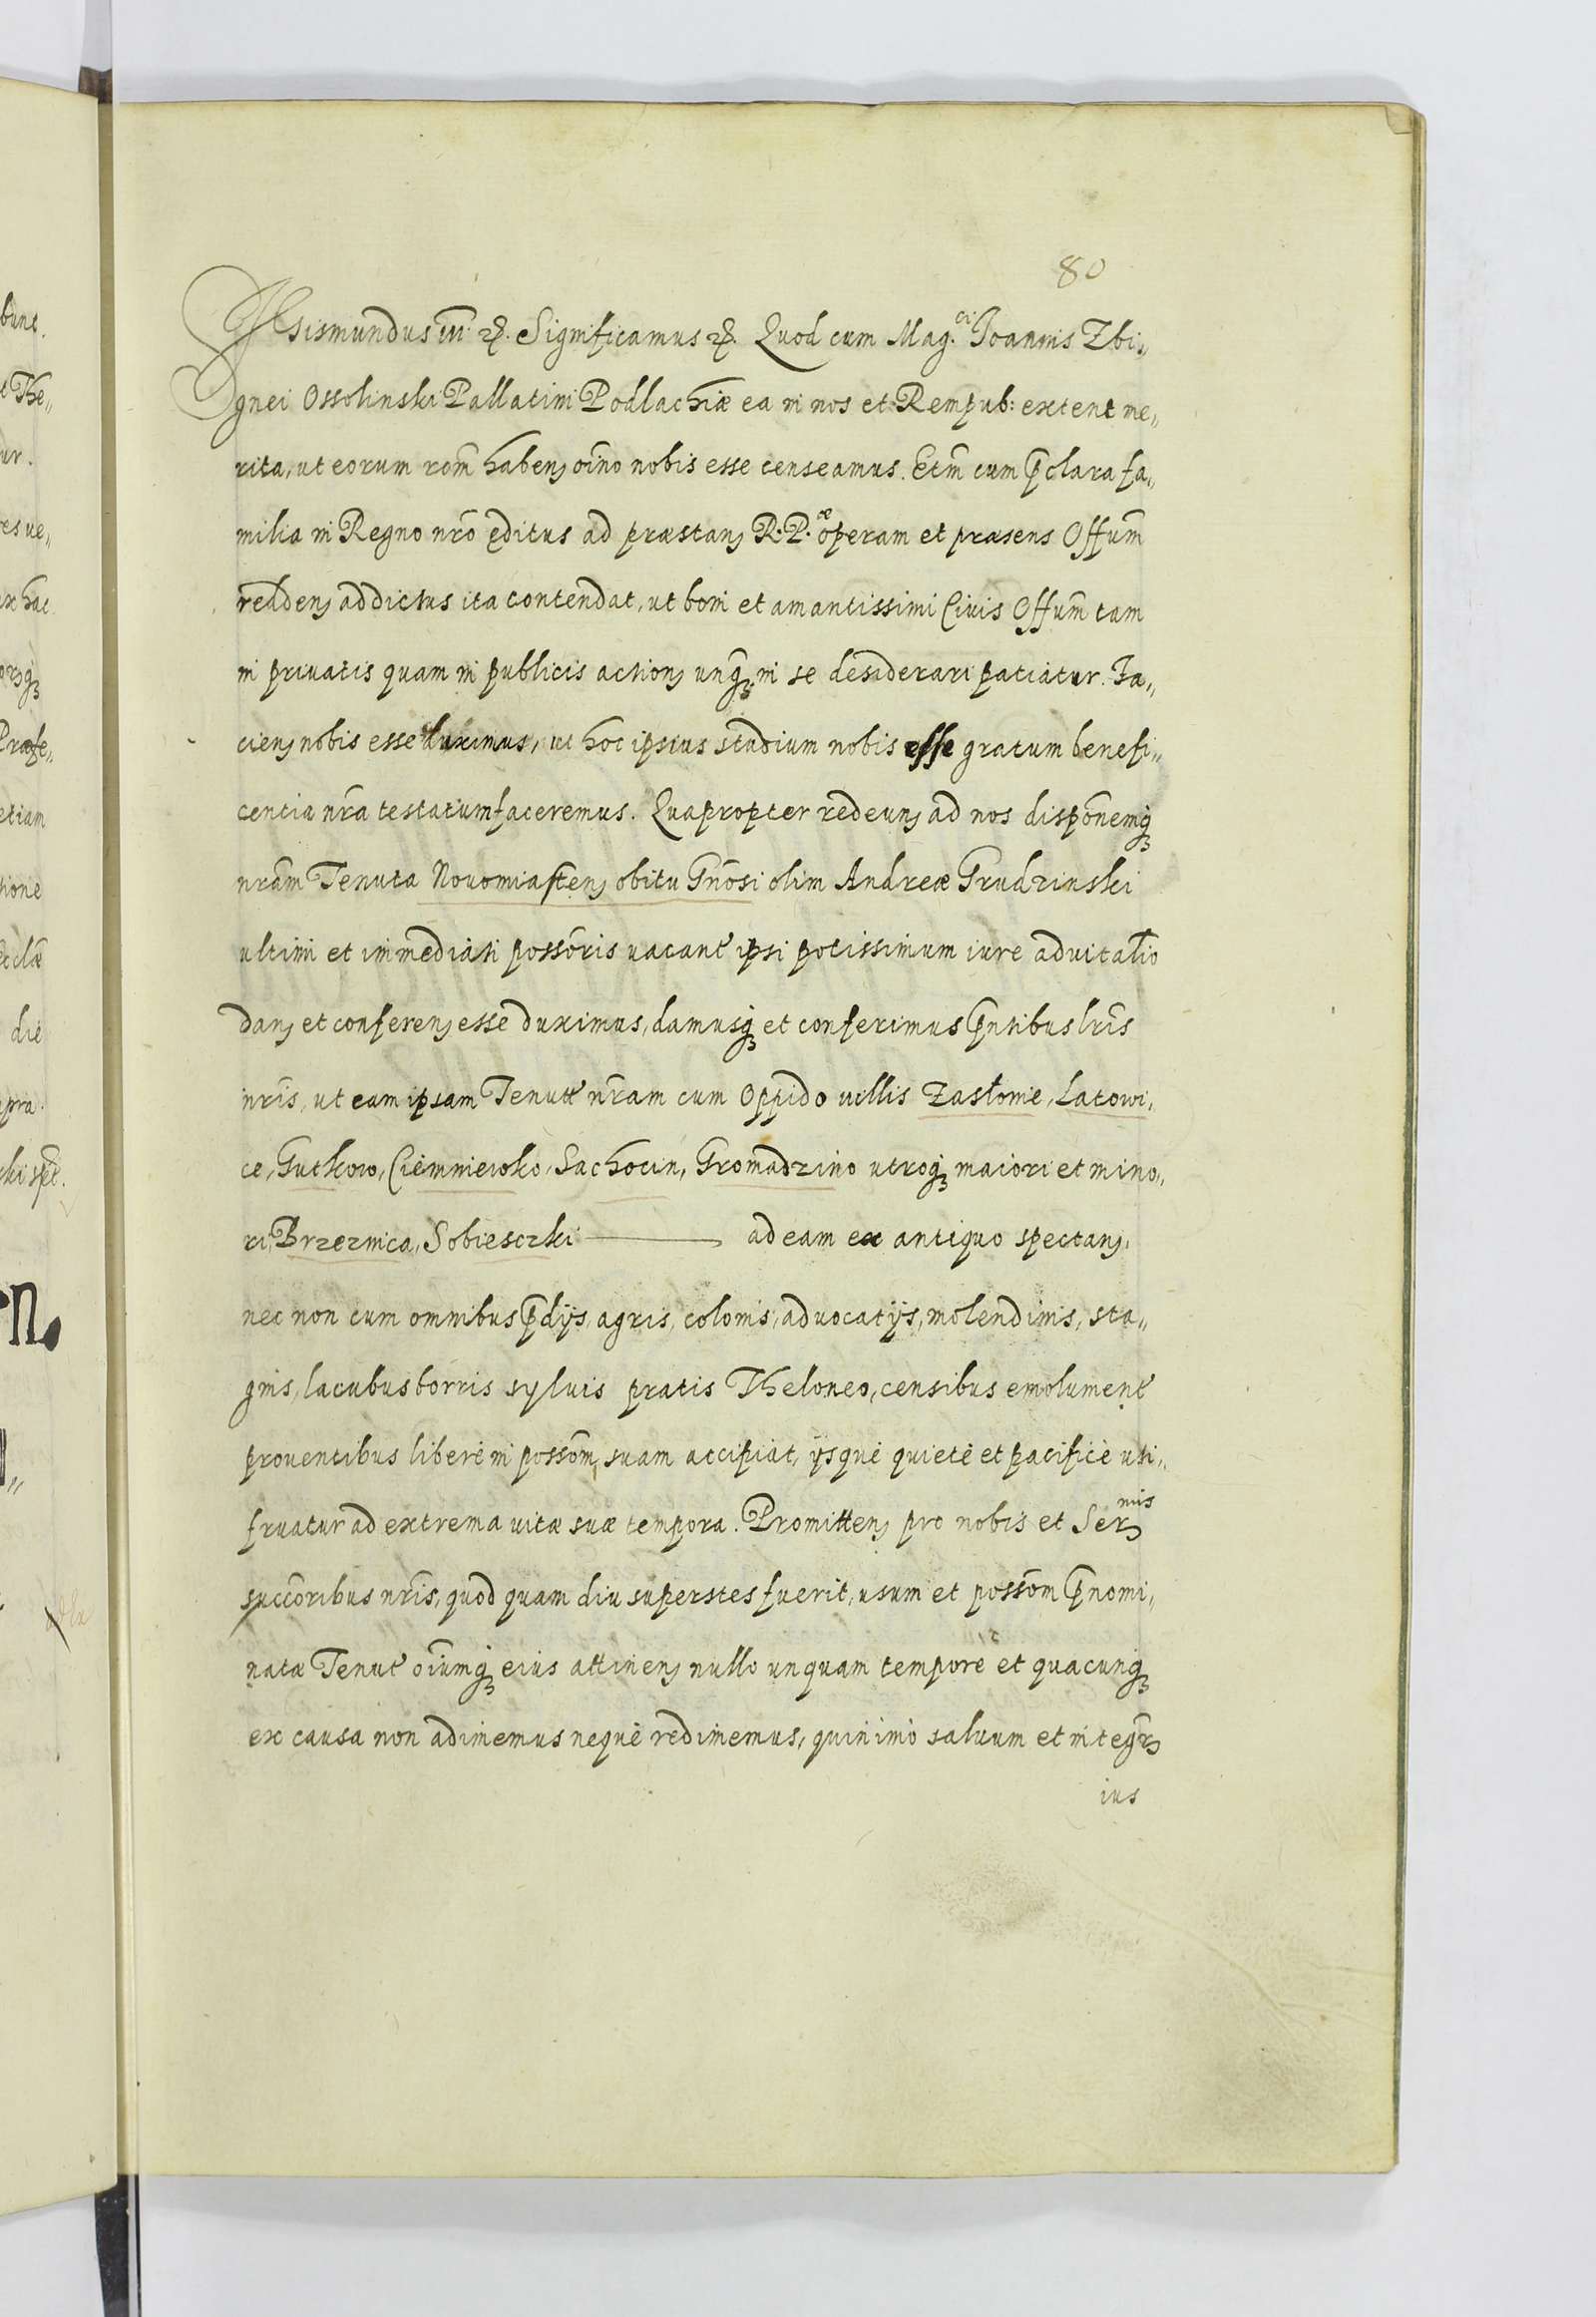 80
Sigismundus III etc. Significamus etc. Quod cum Mag.ci Joannis Zbi„
gnei Ossolinski Pallatini Podlachiæ ea in nos et Rempub: extent me„
rita, ut eorum rom̃ habenɀ oĩno nobis esse censeamus. Etm̃ cum p̃clara fa„
milia in Regno nr̃o editus ad præstanɀ R.P.æ operam et præsens Offum̃
reddenɀ addictus ita contendat, ut boni et amantissimi Ciuis Offum̃ tam
in priuatis quam in publicis actionɀ unqꝫ in se desiderari patiatur. Fa„
cienɀ nobis esse duximus, ut hoc ipsius studium nobis esse gratum benefi„
centia nr̃a testatum faceremus. Quapropter redeunɀ ad nos dispõnemqꝫ
nrãm Tenuta Nouomiastenɀ obitu Gnõsi olim Andreæ Grudzinski
ultimi et immediati possõris uacant̃ ipsi potissimum iure aduitalio
danɀ et conferenɀ esse duximus, damusqꝫ et conferimus p̃ntibus lr̃is
nr̃is, ut eam ipsam Tenutt̃ nr̃am cum Oppido uillis Zastomie, Latowi„
ce, Gutkow, Ciemniewko, Sachocin, Gromadzino utroqꝫ maiori et mino„
ri, Brzeznica, Sobiesczki ad eam ex antiquo spectanɀ,
nec non cum omnibus p̃dijs, agris, colonis, aduocatijs, molendinis, sta„
gnis, lacubus borris syluis pratis Theloneo, censibus emolument̃
prouentibus liberè in possõm suam accipiat, ijsquè quietè et pacificè uti„
fruatur ad extrema uitæ suæ tempora. Promittenɀ pro nobis et Sermis
succõribus nr̃is, quod quam diu superstes fuerit, usum et possõm p̃nomi„
natæ Tenut̃ oĩumqꝫ eius attinenɀ nullo unquam tempore et quacunqꝫ
ex causa non adimemus nequè redimemus, quinimò saluum et integrɀ
ius